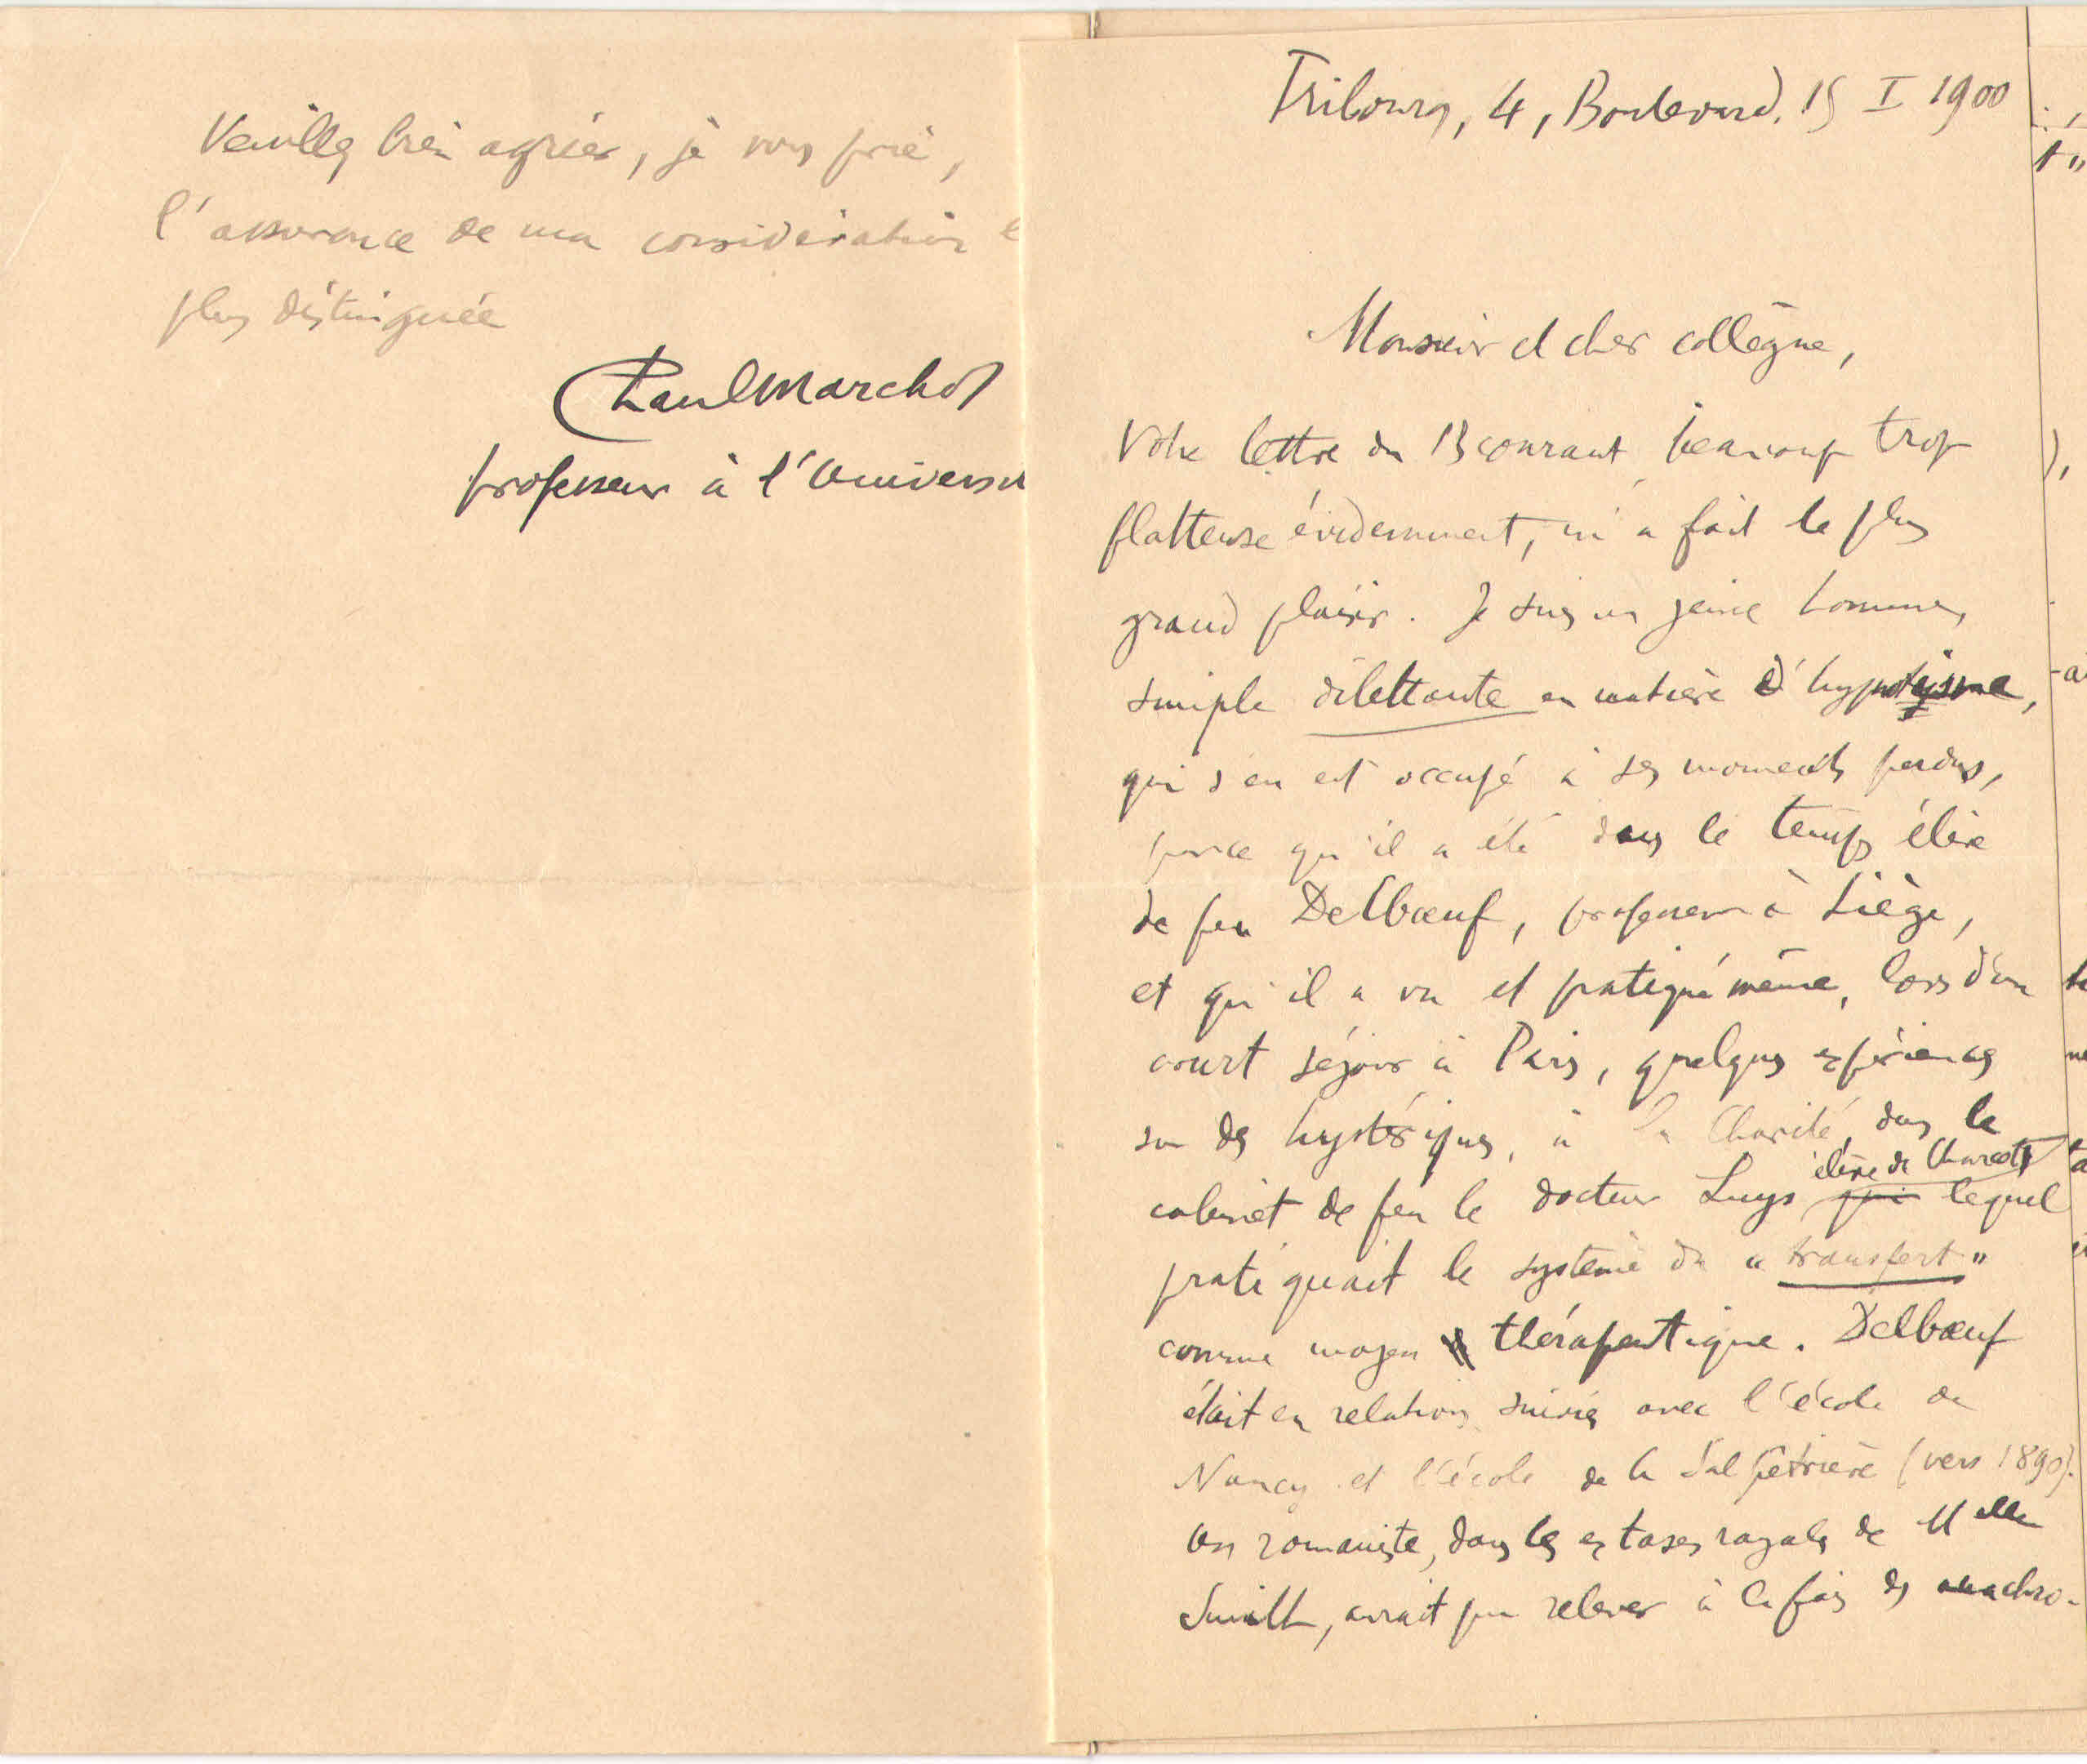 Veuillez bien agréer, je vous prie,
l'assurance de ma considération
plus distinguée
Paul Marchot
professeur à l'Univers
Fribourg, 4, Boulevard. 15 I 1900
Monsieur et cher collègue,
Votre lettre du 13 courant, beaucoup trop
flatteuse évidemment, m'a fait le plus
grand plaisir. Je suis un jeune homme,
simple dilettante en matière d'hypnotisme,
qui s'en est occupé à ses moments perdus,
parce qu'il a été dans le temps élève
de feu Delbœuf, professeur à Liège,
et qu'il a vu et pratiqué même, lors d'un
court séjour à Paris, quelques expériences
sur des hystériques, à la Charité, dans le
cabinet de feu le docteur Luys qui élève de Charcot, lequel
pratiquait le système du « transfert »
comme moyen thérapeutique. Delbœuf
était en relations suivies avec l'école de
Nancy et l'école de la Salpêtrière (vers 1890).
Un romaniste, dans les extases royales de Melle
Smith, aurait pu relever à la fois des anachro-